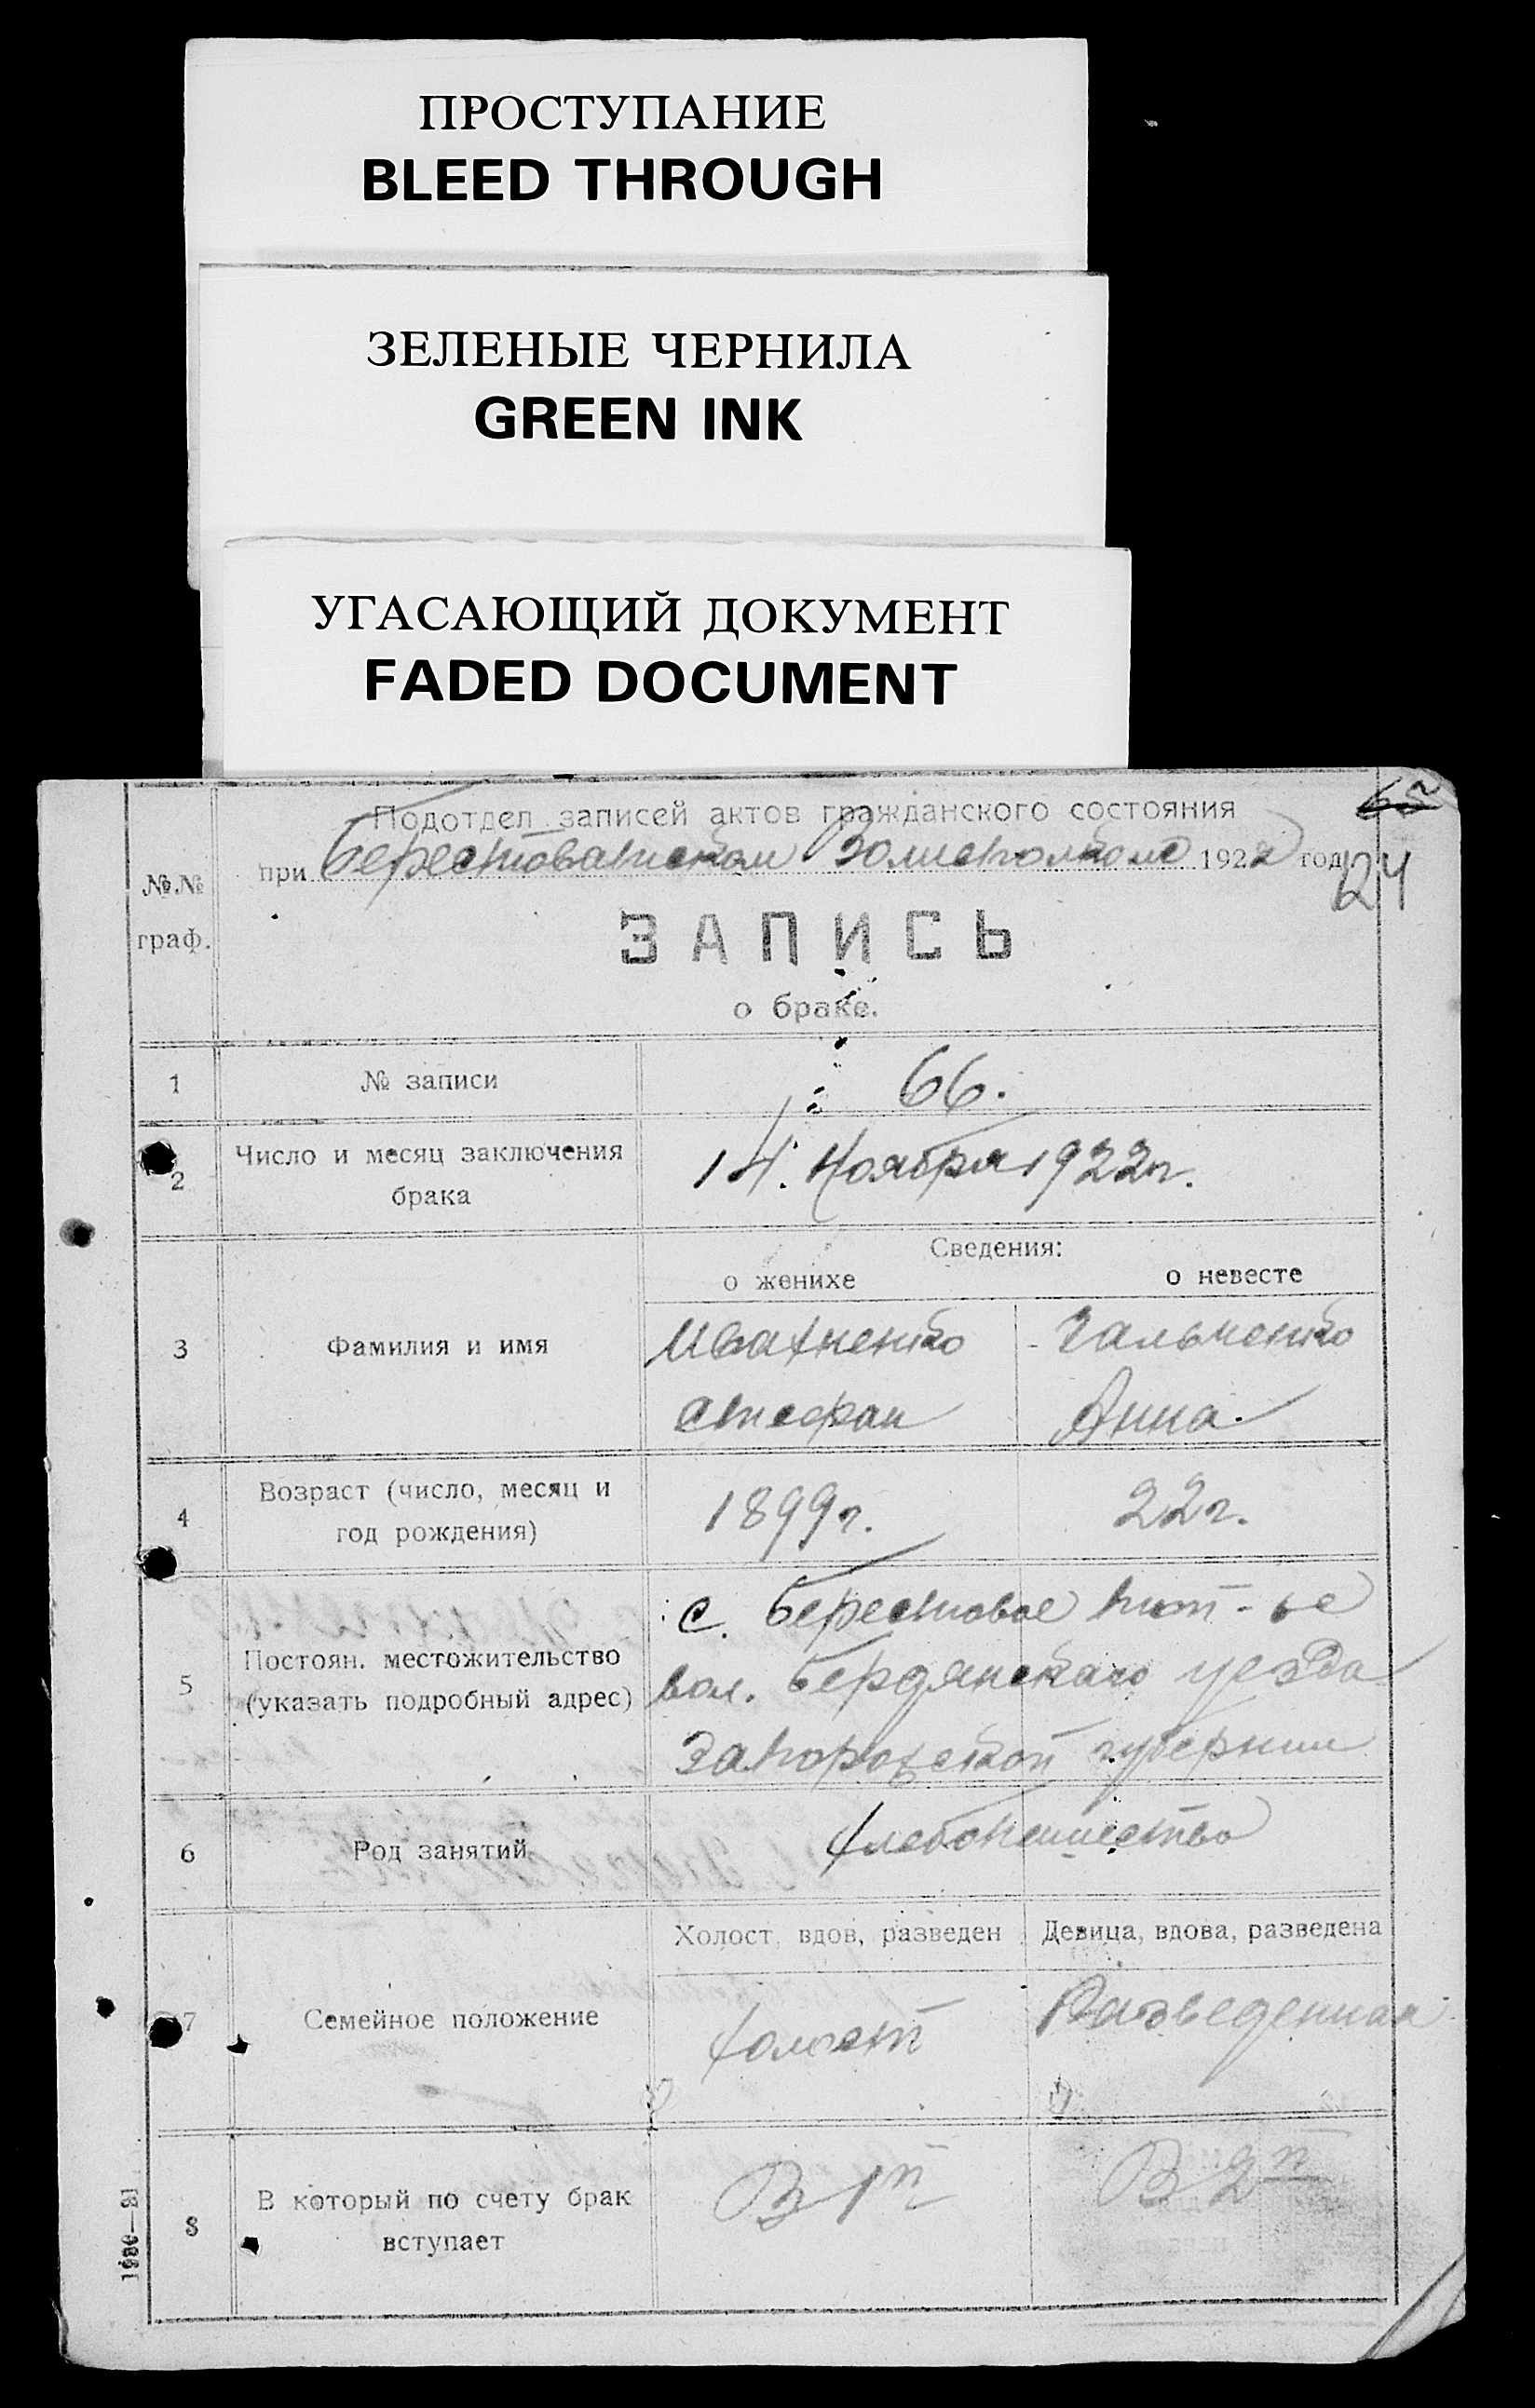 ПРОСТУПАНИЕ
BLEED THROUGH
ЗЕЛЕНЫЕ ЧЕРНИЛА
GREEN INK
УГАСАЮЩИЙ ДОКУМЕНТ
FADED DOCUMENT
Подотдел записей актов гражданского состояния
при Берестоватском Волисполкоме 1922 год
124
№№
граф.
ЗАПИСЬ
о браке.
1 № записи 66.
2 Число и месяц заключения
брака
14. Ноября 1922 г.
Сведения:
о женихе о невесте
3 Фамилия и имя
Ивахненко Гальченко
Стефан Анна
4 Возраст (число, месяц и
год рождения)
1899 г. 22 г.
5 Постоян. местожительство
(указать подробный адрес)
с. Берестовое
вол. Бердянского уезда
Запорожской губернии
6 Род занятий Хлебопашество
Холост, вдов, разведен Девица, вдова, разведена
7 Семейное положение
Холост Разведенная
8 В который по счету брак
вступает
В 1й В 2й